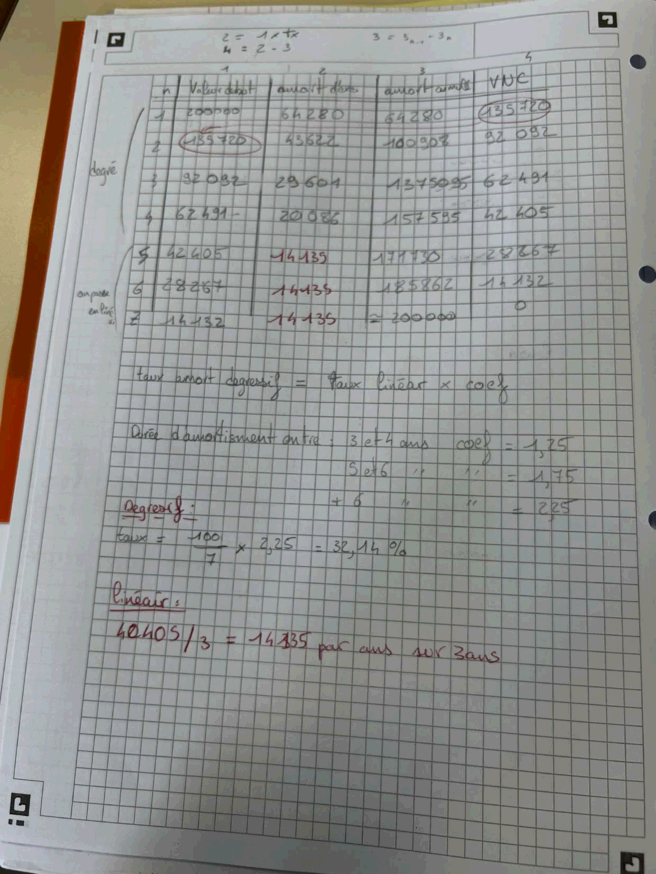 2 = 1 x tx 3 = 3n-1 - 3n
4 = 2 - 3
1 2 3 4
n Valeur debut amort d'ans amort cumulés VNC
1 200000 64280 64280 135720
2 135720 43622 100908 92 092
degré
3 92092 29601 1375095 62 491
4 62 491 - 20 086 157 595 42 405
5 42 405 14 135 171 730 28267
6 28267 14 135 185862 14 132
on passe en
7 14 132 14 135 = 200000 0
taux amort degressif = taux linéar x coef
Durée d'amortisment entre : 3 et 4 ans coef = 1,25
5 et 6 " " = 1,75
+ 6 " " = 2,25
Degressif :
taux = 100/7 x 2,25 = 32,14 %
linéair :
40405/3 = 14335 par ans sur 3ans